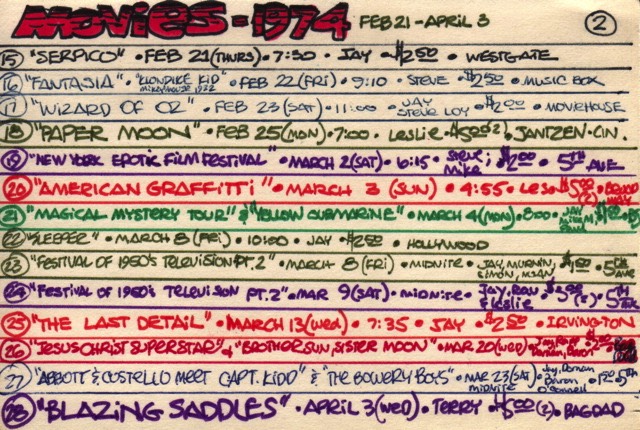 MOVIES - 1974 FEB 21 - APRIL 3 2
15 "SERPICO" • FEB 21 (THURS) • 7:30 • JAY • $2.50 • WESTGATE
16 "FANTASIA" • "KLONDIKE KID" MICKEY MOUSE 1932 • FEB 22 (FRI) • 9:10 • STEVE • $2.50 • MUSIC BOX
17 "WIZARD OF OZ" • FEB 23 (SAT) • 11:00 • JAY STEVE LOY • $2.00 • MOVIEHOUSE
18 "PAPER MOON" • FEB 25 (MON) • 7:00 • LESLIE • $5.00 (2) • JANTZEN-CIN.
19 "NEW YORK EROTIC FILM FESTIVAL" • MARCH 2 (SAT) • 6:15 • STEVE, MIKE • $2.00 • 5TH AVE
20 "AMERICAN GRAFFITTI" • MARCH 3 (SUN) • 4:55 • LES • $5.00 (2) • BROADWAY
21 "MAGICAL MYSTERY TOUR" & "YELLOW SUBMARINE" • MARCH 4 (MON) • 8:00 • JAY
22 "SLEEPER" • MARCH 8 (FRI) • 10:00 • JAY • $2.50 • HOLLYWOOD
23 "FESTIVAL OF 1950'S TELEVISION PT. 2" • MARCH 8 (FRI) • MIDNITE • JAY, MURNIN, SIMON, • $1.50 • 5TH AVE
24 "FESTIVAL OF 1950'S TELEVISION PT. 2" • MAR 9 (SAT) • MIDNITE • JAY, RON & LESLIE • $3.00 (2) • 5TH
25 "THE LAST DETAIL" • MARCH 13 (WED) • 7:35 • JAY • $2.50 • IRVINGTON
26 "JESUS CHRIST SUPERSTAR" & "BROTHER SUN, SISTER MOON" • MAR 20 (WED) •
27 "ABBOTT & COSTELLO MEET CAPT. KIDD" & "THE BOWERY BOYS" • MAR 23 (SAT) MIDNITE • O'DONNELL • 5TH
28 "BLAZING SADDLES" • APRIL 3 (WED) • TERRY • $5.00 (2) • BAGDAD